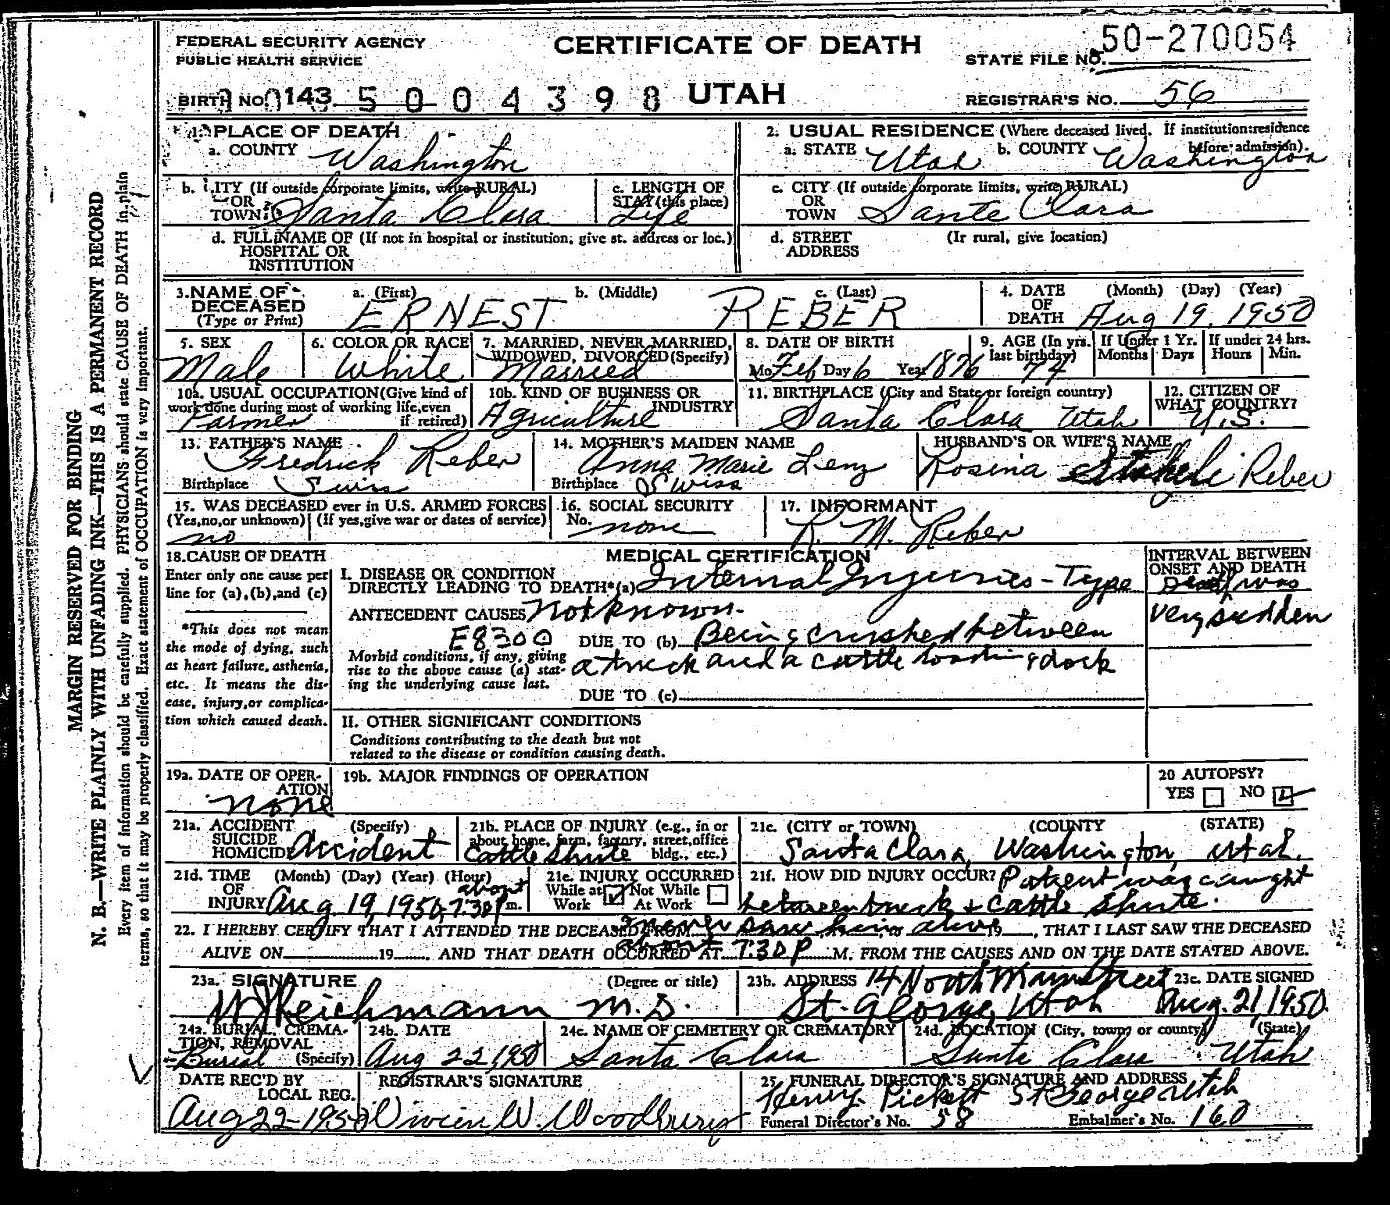 FEDERAL SECURITY AGENCY
PUBLIC HEALTH SERVICE
CERTIFICATE OF DEATH
UTAH
STATE FILE NO. 50-270054
REGISTRAR'S NO. 56
BIRTH NO. 143 5004398
PLACE OF DEATH
a. COUNTY Washington
2. USUAL RESIDENCE (Where deceased lived. If institution: residence before admission).
a. STATE Utah b. COUNTY Washington
b. CITY (If outside corporate limits, write RURAL) OR TOWN Santa Clara
c. LENGTH OF STAY (this place) Life
c. CITY (If outside corporate limits, write RURAL) OR TOWN Santa Clara
d. FULL NAME OF (If not in hospital or institution, give st. address or loc.) HOSPITAL OR INSTITUTION
d. STREET ADDRESS (If rural, give location)
3. NAME OF DECEASED (Type or Print) a. (First) ERNEST b. (Middle) c. (Last) REBER
4. DATE OF DEATH (Month) (Day) (Year) Aug 19, 1950
5. SEX Male
6. COLOR OR RACE White
7. MARRIED, NEVER MARRIED, WIDOWED, DIVORCED (Specify) Married
8. DATE OF BIRTH Mo. Feb Day 6 Year 1876
9. AGE (In yrs. last birthday) 74 If Under 1 Yr. Months Days If under 24 hrs. Hours Min.
10a. USUAL OCCUPATION (Give kind of work done during most of working life, even if retired) Farmer
10b. KIND OF BUSINESS OR INDUSTRY Agriculture
11. BIRTHPLACE (City and State or foreign country) Santa Clara Utah
12. CITIZEN OF WHAT COUNTRY? U.S.
13. FATHER'S NAME Fredrick Reber
Birthplace Swiss
14. MOTHER'S MAIDEN NAME Anna Marie Lenz
Birthplace Swiss
HUSBAND'S OR WIFE'S NAME Rosina Reber
15. WAS DECEASED ever in U.S. ARMED FORCES (Yes, no, or unknown) (If yes, give war or dates of service) no
16. SOCIAL SECURITY No. none
17. INFORMANT R. M. Reber
18. CAUSE OF DEATH
Enter only one cause per line for (a), (b), and (c)
*This does not mean the mode of dying, such as heart failure, asthenia, etc. It means the disease, injury, or complication which caused death.
MEDICAL CERTIFICATION
I. DISEASE OR CONDITION DIRECTLY LEADING TO DEATH* (a) Internal Injuries - Type not known.
ANTECEDENT CAUSES
E8300 DUE TO (b) Being crushed between a truck and a cattle loading dock
Morbid conditions, if any, giving rise to the above cause (a) stating the underlying cause last.
DUE TO (c)
INTERVAL BETWEEN ONSET AND DEATH
Death was very sudden
II. OTHER SIGNIFICANT CONDITIONS
Conditions contributing to the death but not related to the disease or condition causing death.
19a. DATE OF OPERATION none
19b. MAJOR FINDINGS OF OPERATION
20 AUTOPSY? YES NO
21a. ACCIDENT SUICIDE HOMICIDE (Specify) Accident
21b. PLACE OF INJURY (e.g., in or about home, farm, factory, street, office bldg., etc.) Cattle Shute
21c. (CITY or TOWN) (COUNTY) (STATE) Santa Clara, Washington, Utah.
21d. TIME OF INJURY (Month) (Day) (Year) (Hour) Aug. 19, 1950, about 7:30 P m.
21e. INJURY OCCURRED While at Work Not While At Work
21f. HOW DID INJURY OCCUR? Patient was caught between truck & Cattle Shute.
22. I HEREBY CERTIFY THAT I ATTENDED THE DECEASED FROM I never saw him alive 19, THAT I LAST SAW THE DECEASED
ALIVE ON 19, AND THAT DEATH OCCURRED AT about 7:30 P M. FROM THE CAUSES AND ON THE DATE STATED ABOVE.
23a. SIGNATURE (Degree or title) Reichmann M.D.
23b. ADDRESS 14 North Main Street St. George, Utah
23c. DATE SIGNED Aug. 21, 1950.
24a. BURIAL, CREMATION, REMOVAL (Specify) Burial
24b. DATE Aug 22, 1950
24c. NAME OF CEMETERY OR CREMATORY Santa Clara
24d. LOCATION (City, town, or county) (State) Santa Clara Utah
DATE REC'D BY LOCAL REG. Aug 22-1950
REGISTRAR'S SIGNATURE W. Woodbury
25. FUNERAL DIRECTOR'S SIGNATURE AND ADDRESS Henry Pickett St George Utah
Funeral Director's No. 58 Embalmer's No. 160
MARGIN RESERVED FOR BINDING
N. B.—WRITE PLAINLY WITH UNFADING INK—THIS IS A PERMANENT RECORD
Every item of information should be carefully supplied. PHYSICIANS should state CAUSE OF DEATH in plain
terms, so that it may be properly classified. Exact statement of OCCUPATION is very important.